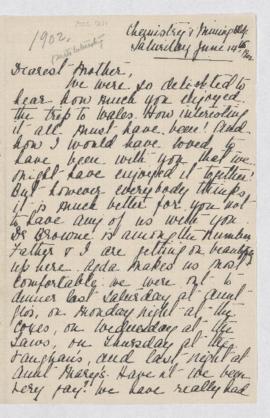 1902.
Chemistry & Mining Bldg.
Saturday June 14th
Dearest Mother,
We were so delighted to
hear how much you enjoyed
the trip to Wales. How interesting
it all must have been! And
how I would have loved to
have been with you that we
might have enjoyed it together!
But however everybody thinks
it is much better for you not
to have any of us with you
Dr Browne is among the number
Father & I are getting on beautifully
up here. Agda makes us most
comfortable. We were out to
dinner last Saturday at Aunt
Glo's, on Monday night at the
Coxes, on Wednesday at the
Laws, on Thursday at the
Vaughans, and last night at
Aunt Mary's. Haven't we been
very gay! We have really had